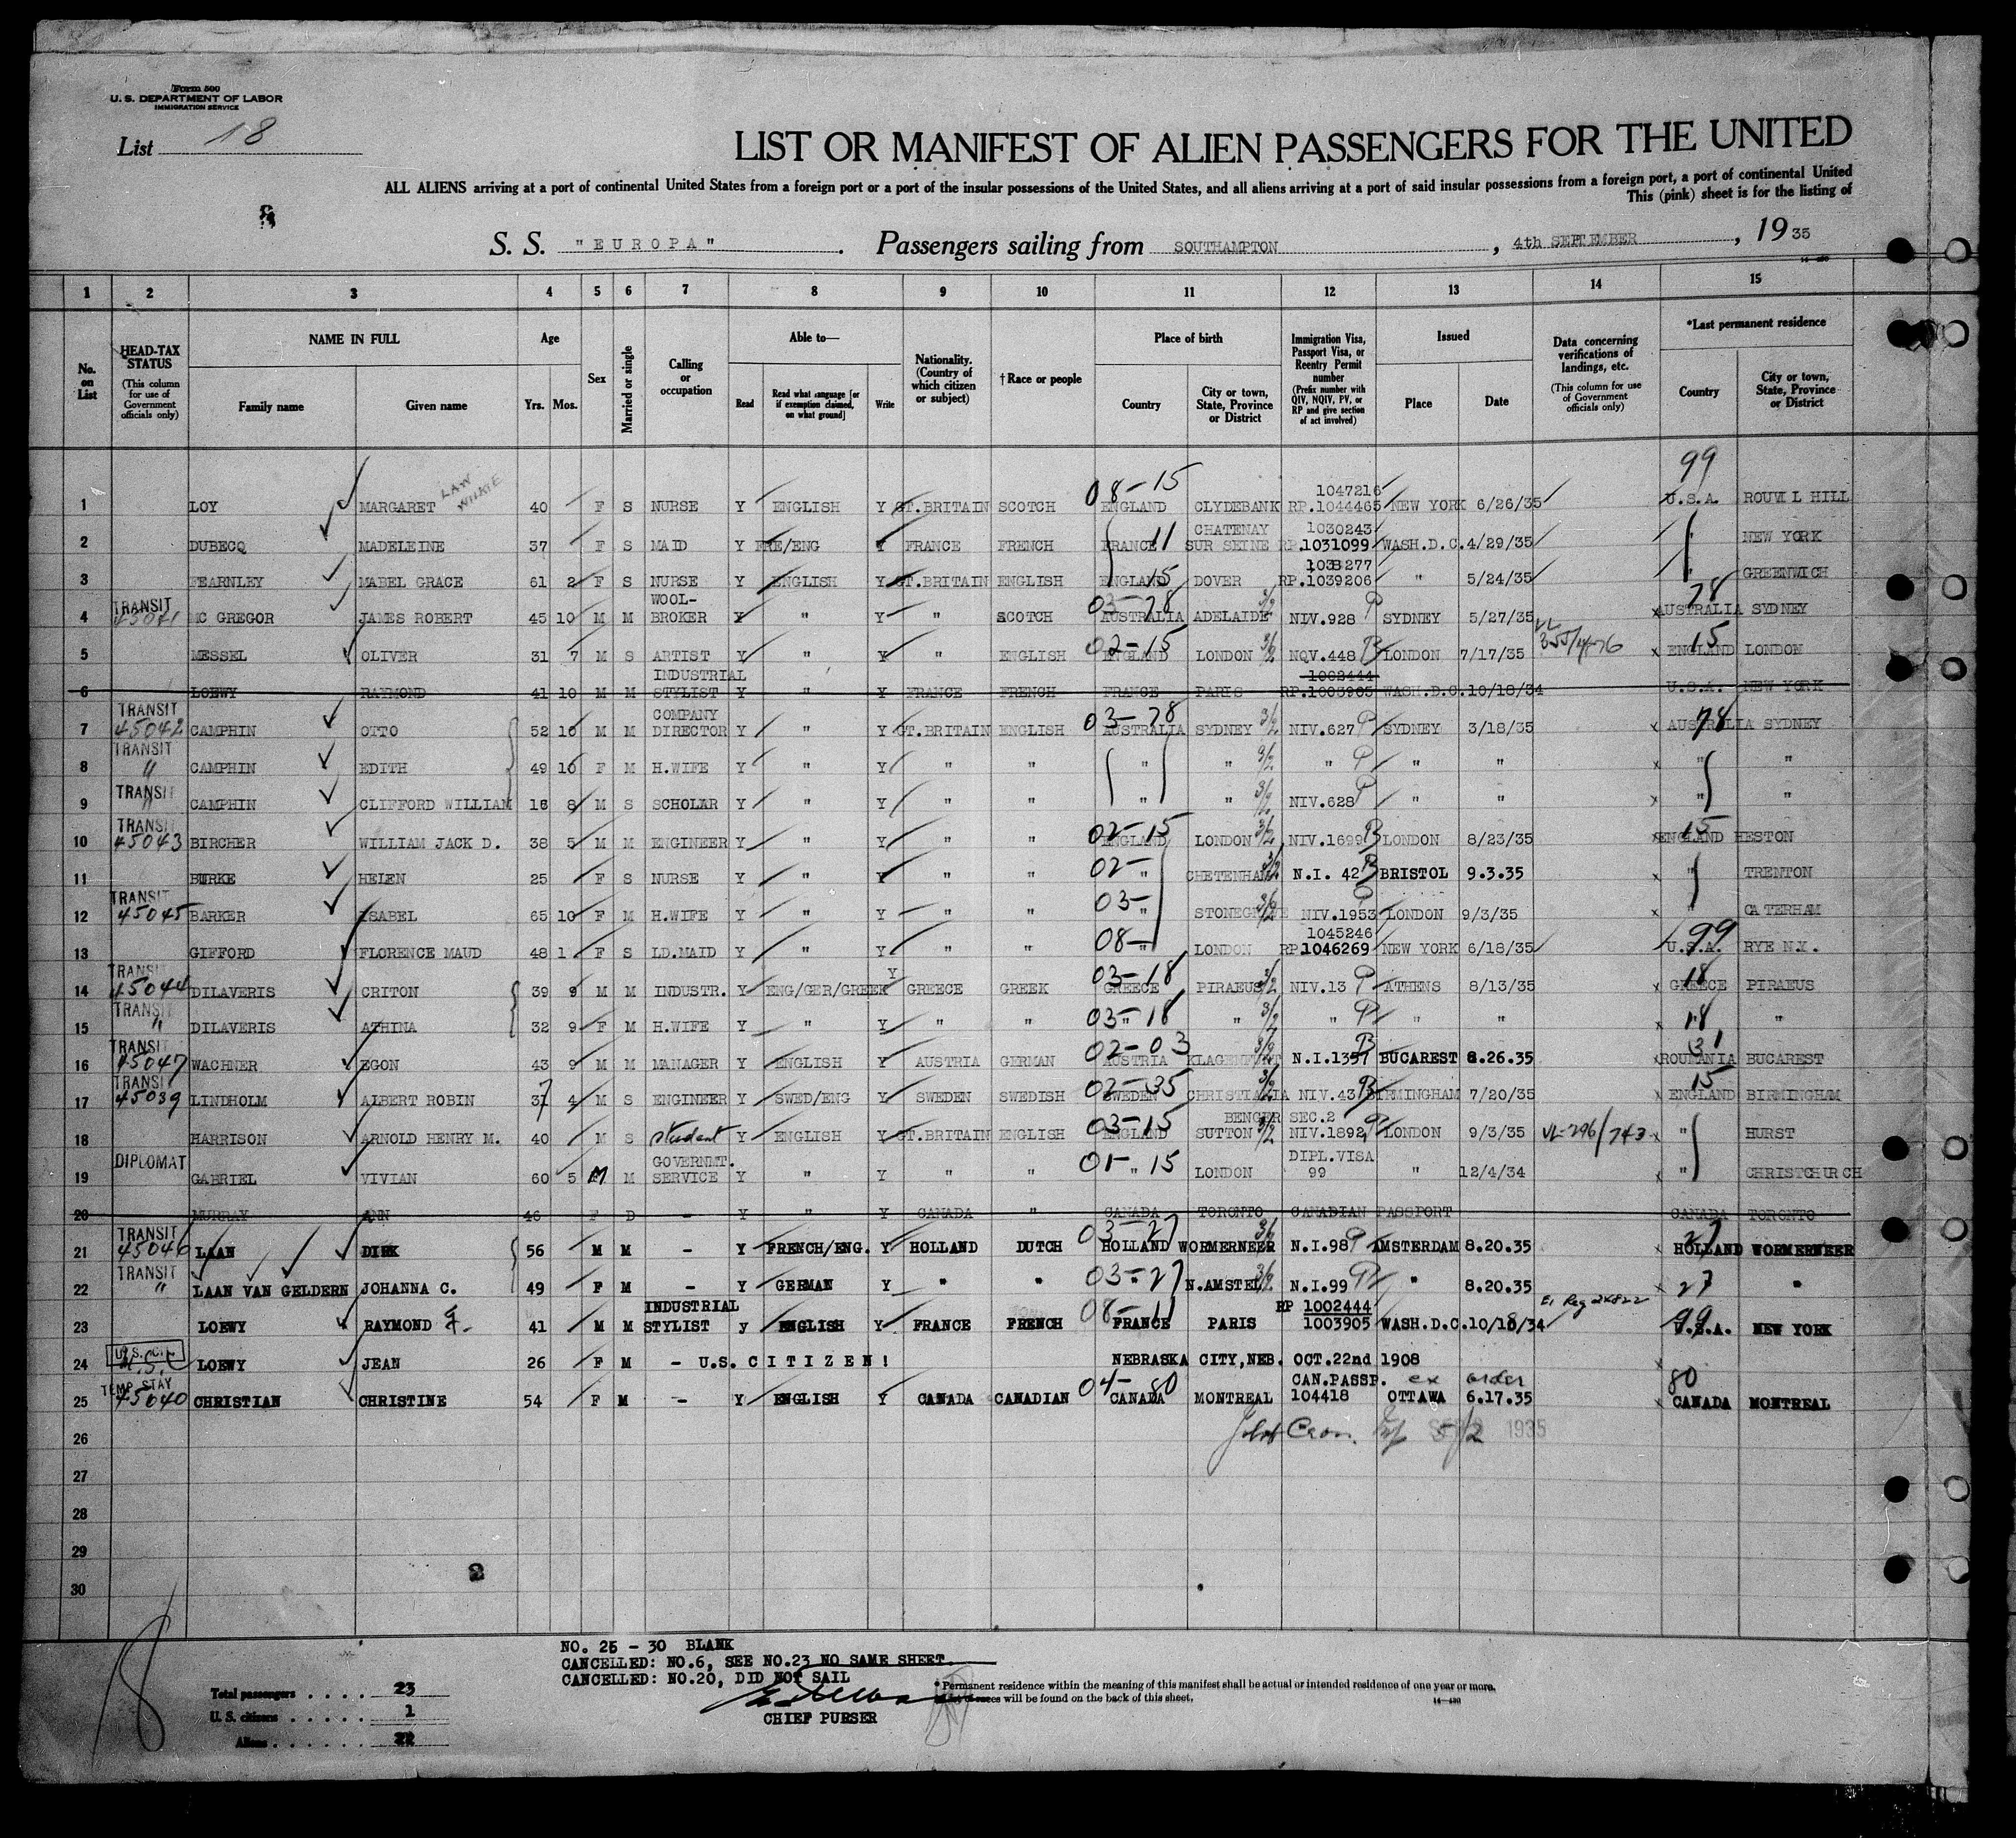 Form 500
U. S. DEPARTMENT OF LABOR
IMMIGRATION SERVICE
List 18
LIST OR MANIFEST OF ALIEN PASSENGERS FOR THE UNITED
ALL ALIENS arriving at a port of continental United States from a foreign port or a port of the insular possessions of the United States, and all aliens arriving at a port of said insular possessions from a foreign port, a port of continental United
This (pink) sheet is for the listing of
S. S. "EUROPA". Passengers sailing from SOUTHAMPTON, 4th SEPTEMBER, 1935
1 2 3 4 5 6 7 8 9 10 11 12 13 14 15
No. on List
HEAD-TAX STATUS (This column for use of Government officials only)
NAME IN FULL Family name Given name
Age Yrs. Mos.
Sex
Married or single
Calling or occupation
Able to— Read Read what language [or if exemption claimed, on what ground] Write
Nationality. (Country of which citizen or subject)
†Race or people
Place of birth Country City or town, State, Province or District
Immigration Visa, Passport Visa, or Reentry Permit number (Prefix number with QIV, NQIV, PV, or RP and give section of act involved)
Issued Place Date
Data concerning verifications of landings, etc. (This column for use of Government officials only)
*Last permanent residence Country City or town, State, Province or District
99
LAW WILKIE 08-15 1047216
1 LOY MARGARET 40 F S NURSE Y ENGLISH Y GT.BRITAIN SCOTCH ENGLAND CLYDEBANK RP.1044465 NEW YORK 6/26/35 U.S.A. ROUVIL HILL
CHATENAY 1030243
2 DUBECQ MADELEINE 37 F S MAID Y FRE/ENG Y FRANCE FRENCH FRANCE 11 SUR SEINE RP.1031099 WASH.D.C. 4/29/35 " NEW YORK
1038277
3 FEARNLEY MABEL GRACE 61 2 F S NURSE Y ENGLISH Y GT.BRITAIN ENGLISH ENGLAND 15 DOVER RP.1039206 " 5/24/35 " GREENWICH
TRANSIT WOOL- 03-78 78
4 45041 MC GREGOR JAMES ROBERT 45 10 M M BROKER Y " Y " SCOTCH AUSTRALIA ADELAIDE NIV.928 SYDNEY 5/27/35 AUSTRALIA SYDNEY
02-15 15
5 MESSEL OLIVER 31 7 M S ARTIST Y " Y " ENGLISH ENGLAND LONDON NQV.448 LONDON 7/17/35 ENGLAND LONDON
INDUSTRIAL 1002444
6 LOEWY RAYMOND 41 10 M M STYLIST Y " Y FRANCE FRENCH FRANCE PARIS RP.1003905 WASH.D.C. 10/18/34 U.S.A. NEW YORK
TRANSIT COMPANY 03-78 78
7 45042 CAMPHIN OTTO 52 10 M M DIRECTOR Y " Y GT.BRITAIN ENGLISH AUSTRALIA SYDNEY NIV.627 SYDNEY 3/18/35 AUSTRALIA SYDNEY
TRANSIT
8 " CAMPHIN EDITH 49 10 F M H.WIFE Y " Y " " " " " " " " "
TRANSIT
9 " CAMPHIN CLIFFORD WILLIAM 16 8 M S SCHOLAR Y " Y " " " " NIV.628 " " " "
TRANSIT 02-15 15
10 45043 BIRCHER WILLIAM JACK D. 38 5 M M ENGINEER Y " Y " " ENGLAND LONDON NIV.1699 LONDON 8/23/35 ENGLAND HESTON
02-
11 BURKE HELEN 25 F S NURSE Y " Y " " " CHETENHAM N.I. 42 BRISTOL 9.3.35 " TRENTON
TRANSIT 03-
12 45045 BARKER YSABEL 65 10 F M H.WIFE Y " Y " " " NIV.1953 LONDON 9/3/35 " CATERHAM
08- 1045246 99
13 GIFFORD FLORENCE MAUD 48 1 F S LD.MAID Y " Y " " " LONDON RP.1046269 NEW YORK 6/18/35 U.S.A. RYE N.Y.
TRANSIT Y 03-18 18
14 45044 DILAVERIS CRITON 39 9 M M INDUSTR. Y ENG/GER/GREEK GREECE GREEK GREECE PIRAEUS NIV.13 ATHENS 8/13/35 GREECE PIRAEUS
TRANSIT 03-18 18
15 " DILAVERIS ATHINA 32 9 F M H.WIFE Y " Y " " " " " " " "
TRANSIT 02-03 31
16 45047 WACHNER EGON 43 9 M M MANAGER Y ENGLISH Y AUSTRIA GERMAN AUSTRIA N.I.1357 BUCAREST 8.26.35 ROUMANIA BUCAREST
TRANSIT 02-35 15
17 45039 LINDHOLM ALBERT ROBIN 37 4 M S ENGINEER Y SWED/ENG Y SWEDEN SWEDISH SWEDEN CHRISTIALIA NIV.43 BIRMINGHAM 7/20/35 ENGLAND BIRMINGHAM
03-15 BENGER SEC.2
18 HARRISON ARNOLD HENRY M. 40 M S student Y ENGLISH Y GT.BRITAIN ENGLISH ENGLAND SUTTON NIV.1892 LONDON 9/3/35 VL-296/743 " HURST
DIPLOMAT GOVERNMT. 01-15 DIPL.VISA
19 GABRIEL VIVIAN 60 5 M M SERVICE Y " Y " " " LONDON 99 " 12/4/34 " CHRISTCHURCH
20 MURRAY ANN 46 F D - Y " Y CANADA " CANADA TORONTO CANADIAN PASSPORT CANADA TORONTO
TRANSIT 03-27 27
21 45046 LAAN DIRK 56 M M - Y FRENCH/ENG. Y HOLLAND DUTCH HOLLAND WORMERNEER N.I.98 AMSTERDAM 8.20.35 HOLLAND WORMERNEER
TRANSIT 03-27 27
22 " LAAN VAN GELDERN JOHANNA C. 49 F M - Y GERMAN Y " " " N.AMSTEL N.I.99 " 8.20.35 "
INDUSTRIAL 08-11 RP 1002444 99
23 LOEWY RAYMOND F. 41 M M STYLIST y ENGLISH Y FRANCE FRENCH FRANCE PARIS 1003905 WASH.D.C. 10/18/34 U.S.A. NEW YORK
U.S. CIT.
24 LOEWY JEAN 26 F M - U.S. CITIZEN! NEBRASKA CITY, NEB. OCT.22nd 1908
TEMP. STAY 04-80 CAN.PASSP. ex order 80
25 45040 CHRISTIAN CHRISTINE 54 F M - Y ENGLISH Y CANADA CANADIAN CANADA MONTREAL 104418 OTTAWA 6.17.35 CANADA MONTREAL
26 1935
27
28
29
30
NO. 26 - 30 BLANK
CANCELLED: NO.6, SEE NO.23 NO SAME SHEET
CANCELLED: NO.20, DID NOT SAIL
CHIEF PURSER
Total passengers . . . . 23
U. S. citizens . . . . . 1
Aliens . . . . . . 22
* Permanent residence within the meaning of this manifest shall be actual or intended residence of one year or more.
races will be found on the back of this sheet.
18